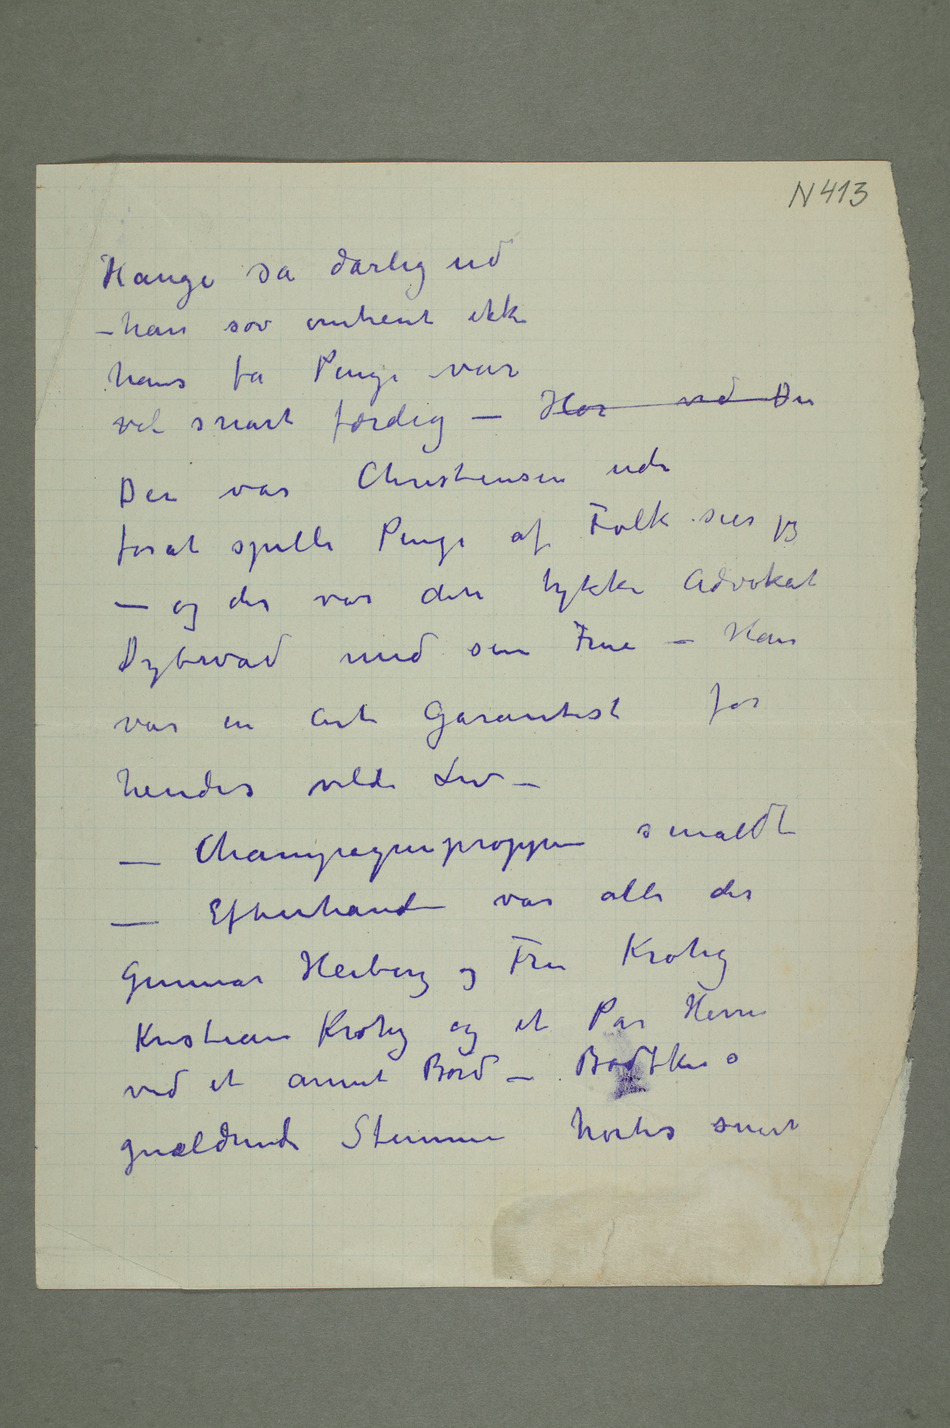 N 413
Hauge så dårlig ud
– han sov omtrent ikke
hans få Penge var
vel snart færdig – Hør ved Du
Der var Christensen ude
forat spille Penge af Folk sies jeg
– og der var den tykke Advokat
Dybwad med sin Frue – Han
var en Art Garantist for
hendes vilde Liv –
– Champagneproppene smaldt
– Efterhånden var alle der
Gunnar Heiberg og Fru Krohg
Kristian Krohg og et Par Herrer
ved et annet Bord – Bødtkers
gnældrende Stemme hørtes snart